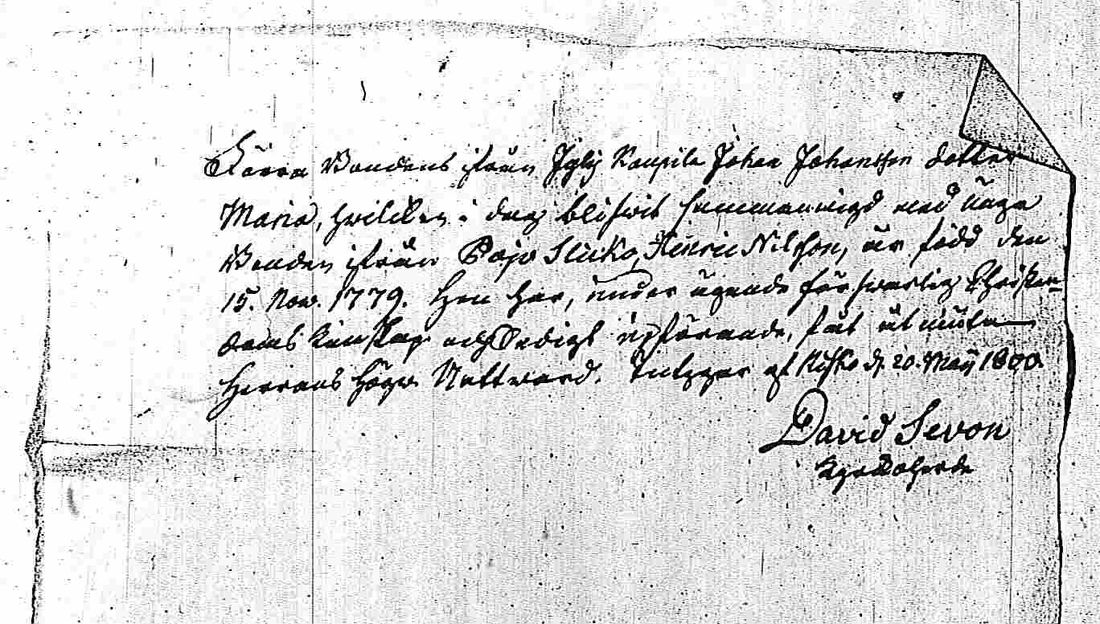 Bondens ifrån Kaupila Johan Johansson dotter
Maria, hvilken i dag blifwit sammanwigd med unga
Bonden ifrån Pajo Slicko, Hinric Nilsson, är född den
15. Nov. 1779. Hon har, under ägande förswarlig Christen-
doms kunskap och sedigt upförande, fåt åtniuta
Herrans Höga Nattward. af d. 20. Maij 1800.
David Sevon
Kyrkoherde